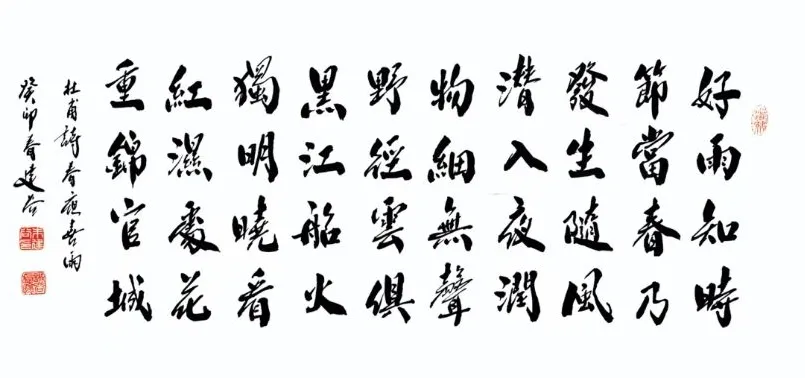 好雨知時
節當春乃
發生隨風
潜入夜潤
物細無聲
野徑雲俱
黑江船火
獨明曉看
紅濕處花
重錦官城
杜甫詩春夜喜雨
癸卯春建